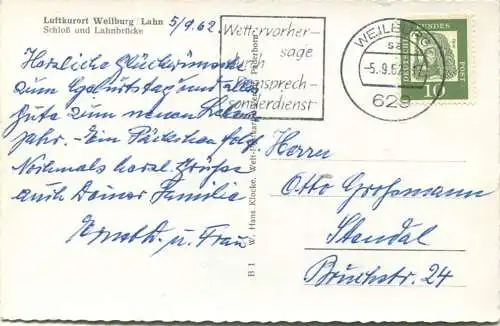 Luftkurort Weilburg Lahn
Schloß und Lahnbrücke
5/9.62.
Herzliche Glückwünsche
zum Geburtstag und alles
Gute zum neuen Lebens-
jahr. Ein Päckchen folgt
Nochmals herzl. Grüsse
auch Deiner Familie
u. Frau
B 1 W. Hans Klocke, Paderborn
Wettervorher-
sage
durch
Fernsprech-
sonderdienst
WEILBURG
-5.9.62
629
BUNDES
POST
10
Herrn
Otto Grossmann
Stendal
Bruchstr. 24